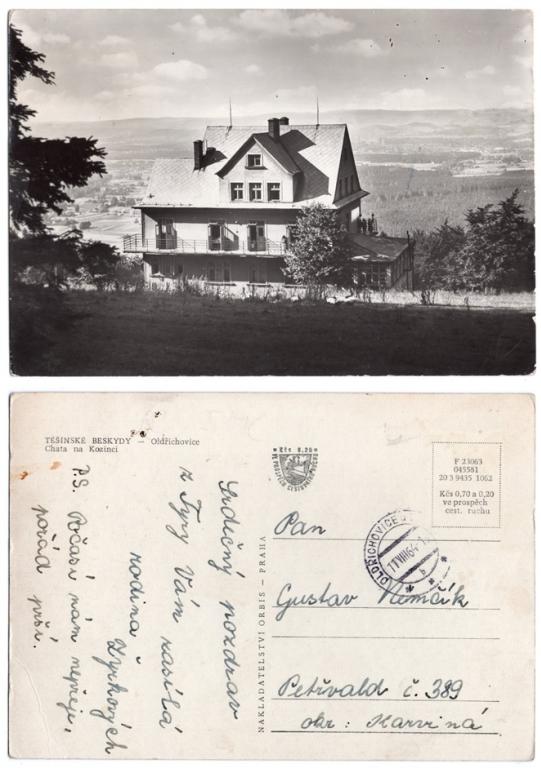 TĚŠÍNSKÉ BESKYDY — Oldřichovice
Chata na Kozinci
Kčs 0,20
VE PROSPĚCH CESTOVNÍHO RUCHU
F 23063
045581
20 3 9435 1062
Kčs 0,70 a 0,20
ve prospěch
cest. ruchu
OLDŘICHOVICE
11.VIII.64
b
NAKLADATELSTVÍ ORBIS – PRAHA
Srdečný pozdrav
z Tyry Vám zasílá
rodina
Zyrkových
P.S. Počasí nám nepřeje,
pořád prší.
Pan
Gustav Němčík
Petřvald č. 389
okr: Karviná